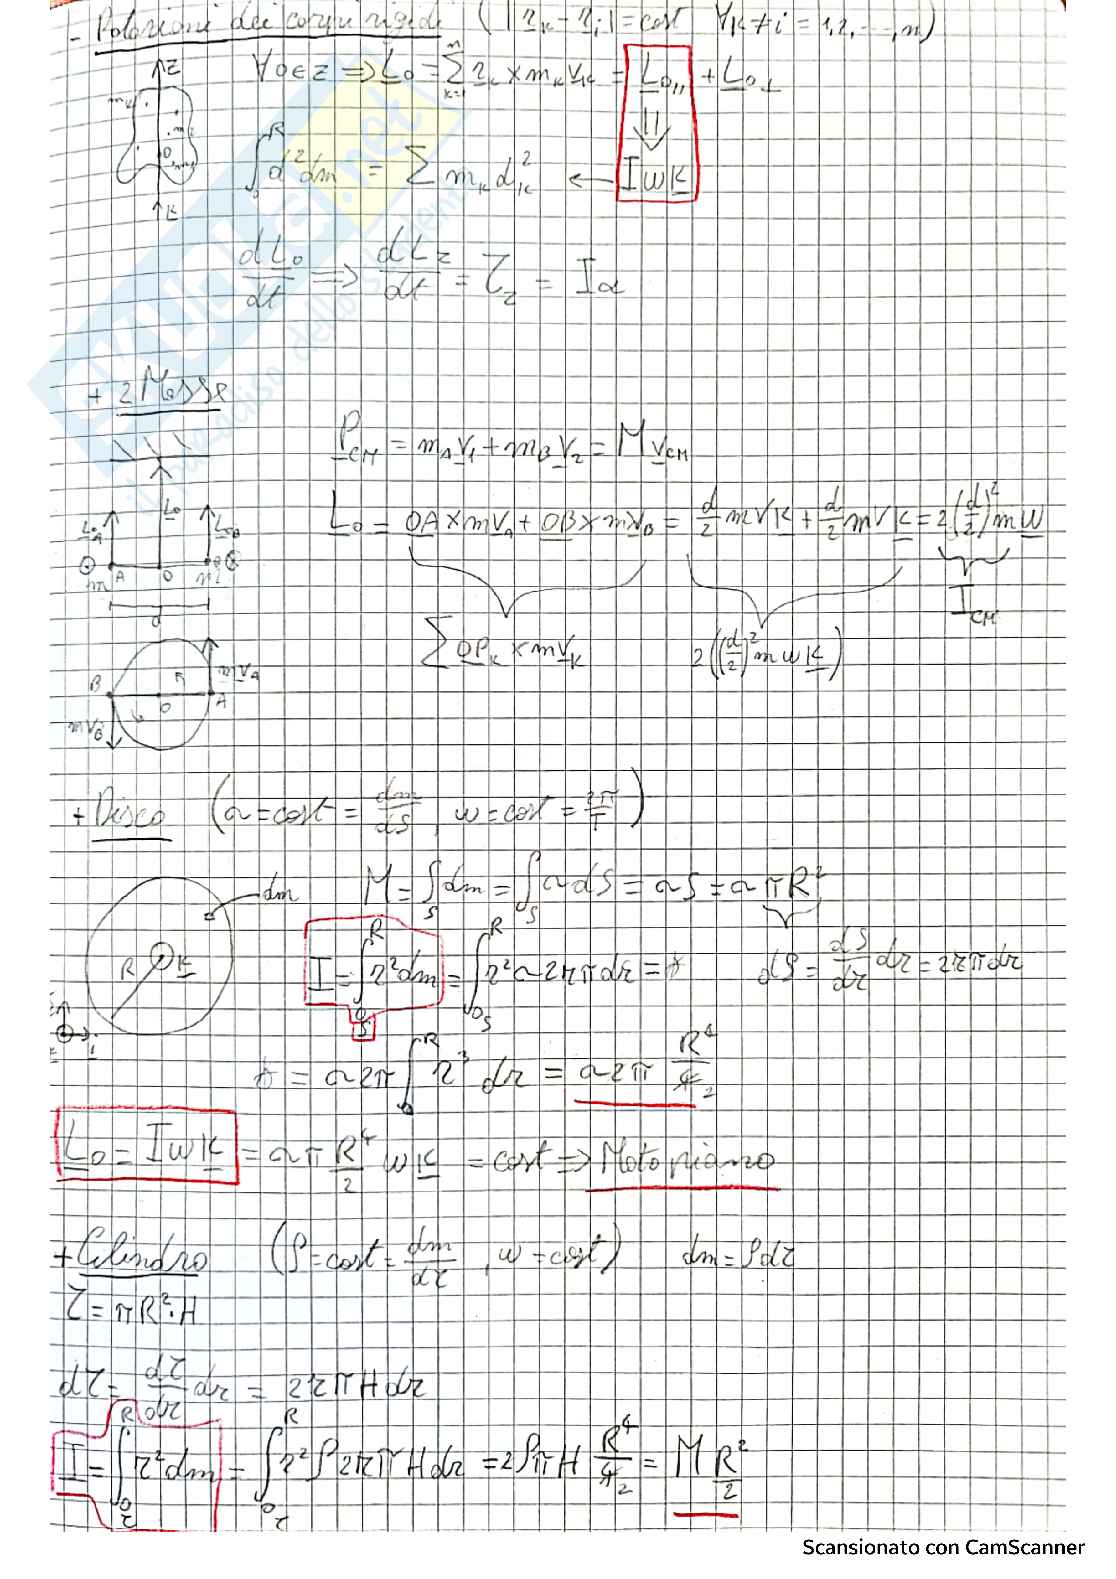 - Rotazioni dei corpi rigidi ( |r_k - r_i| = cost ∀k ≠ i = 1,2, ---, n)
z
∀ O ∈ z ⟹ L_O = Σ_{k=1}^{n} r_k × m_k v_k = L_O,, + L_O⊥
∫_0^R d² dm = Σ m_k d_k² ← I ω k
k
dL_O/dt ⟹ dL_z/dt = τ_z = I α
+ 2 Masse
P_CM = m_A v_1 + m_B v_2 = M v_CM
L_O = OA × m v_A + OB × m v_B = d/2 m v k + d/2 m v k = 2 (d/2)² m ω
m A O
d
I_CM
Σ OP_k × m v_k 2((d/2)² m ω k)
B O A m v_A
m v_B
+ Disco (σ = cost = dm/dS, ω = cost = 2π/T)
dm
M = ∫_S dm = ∫_S σ dS = σ S = σ π R²
R k
I = ∫_0^R r² dm = ∫_0^R r² σ 2 r π dr = * dS = dS/dr dr = 2 r π dr
S S
* = σ 2π ∫_0^R r³ dr = σ 2π R⁴/4 2
L_O = I ω k = σ π R⁴/2 ω k = cost ⟹ Moto piano
+ Cilindro (ρ = cost = dm/dτ, ω = cost) dm = ρ dτ
τ = π R² · H
dτ = dτ/dr dr = 2 r π H dr
I = ∫_0^R r² dm = ∫_0^R r² ρ 2 r π H dr = 2 ρ π H R⁴/4 2 = M R²/2
τ τ
Scansionato con CamScanner